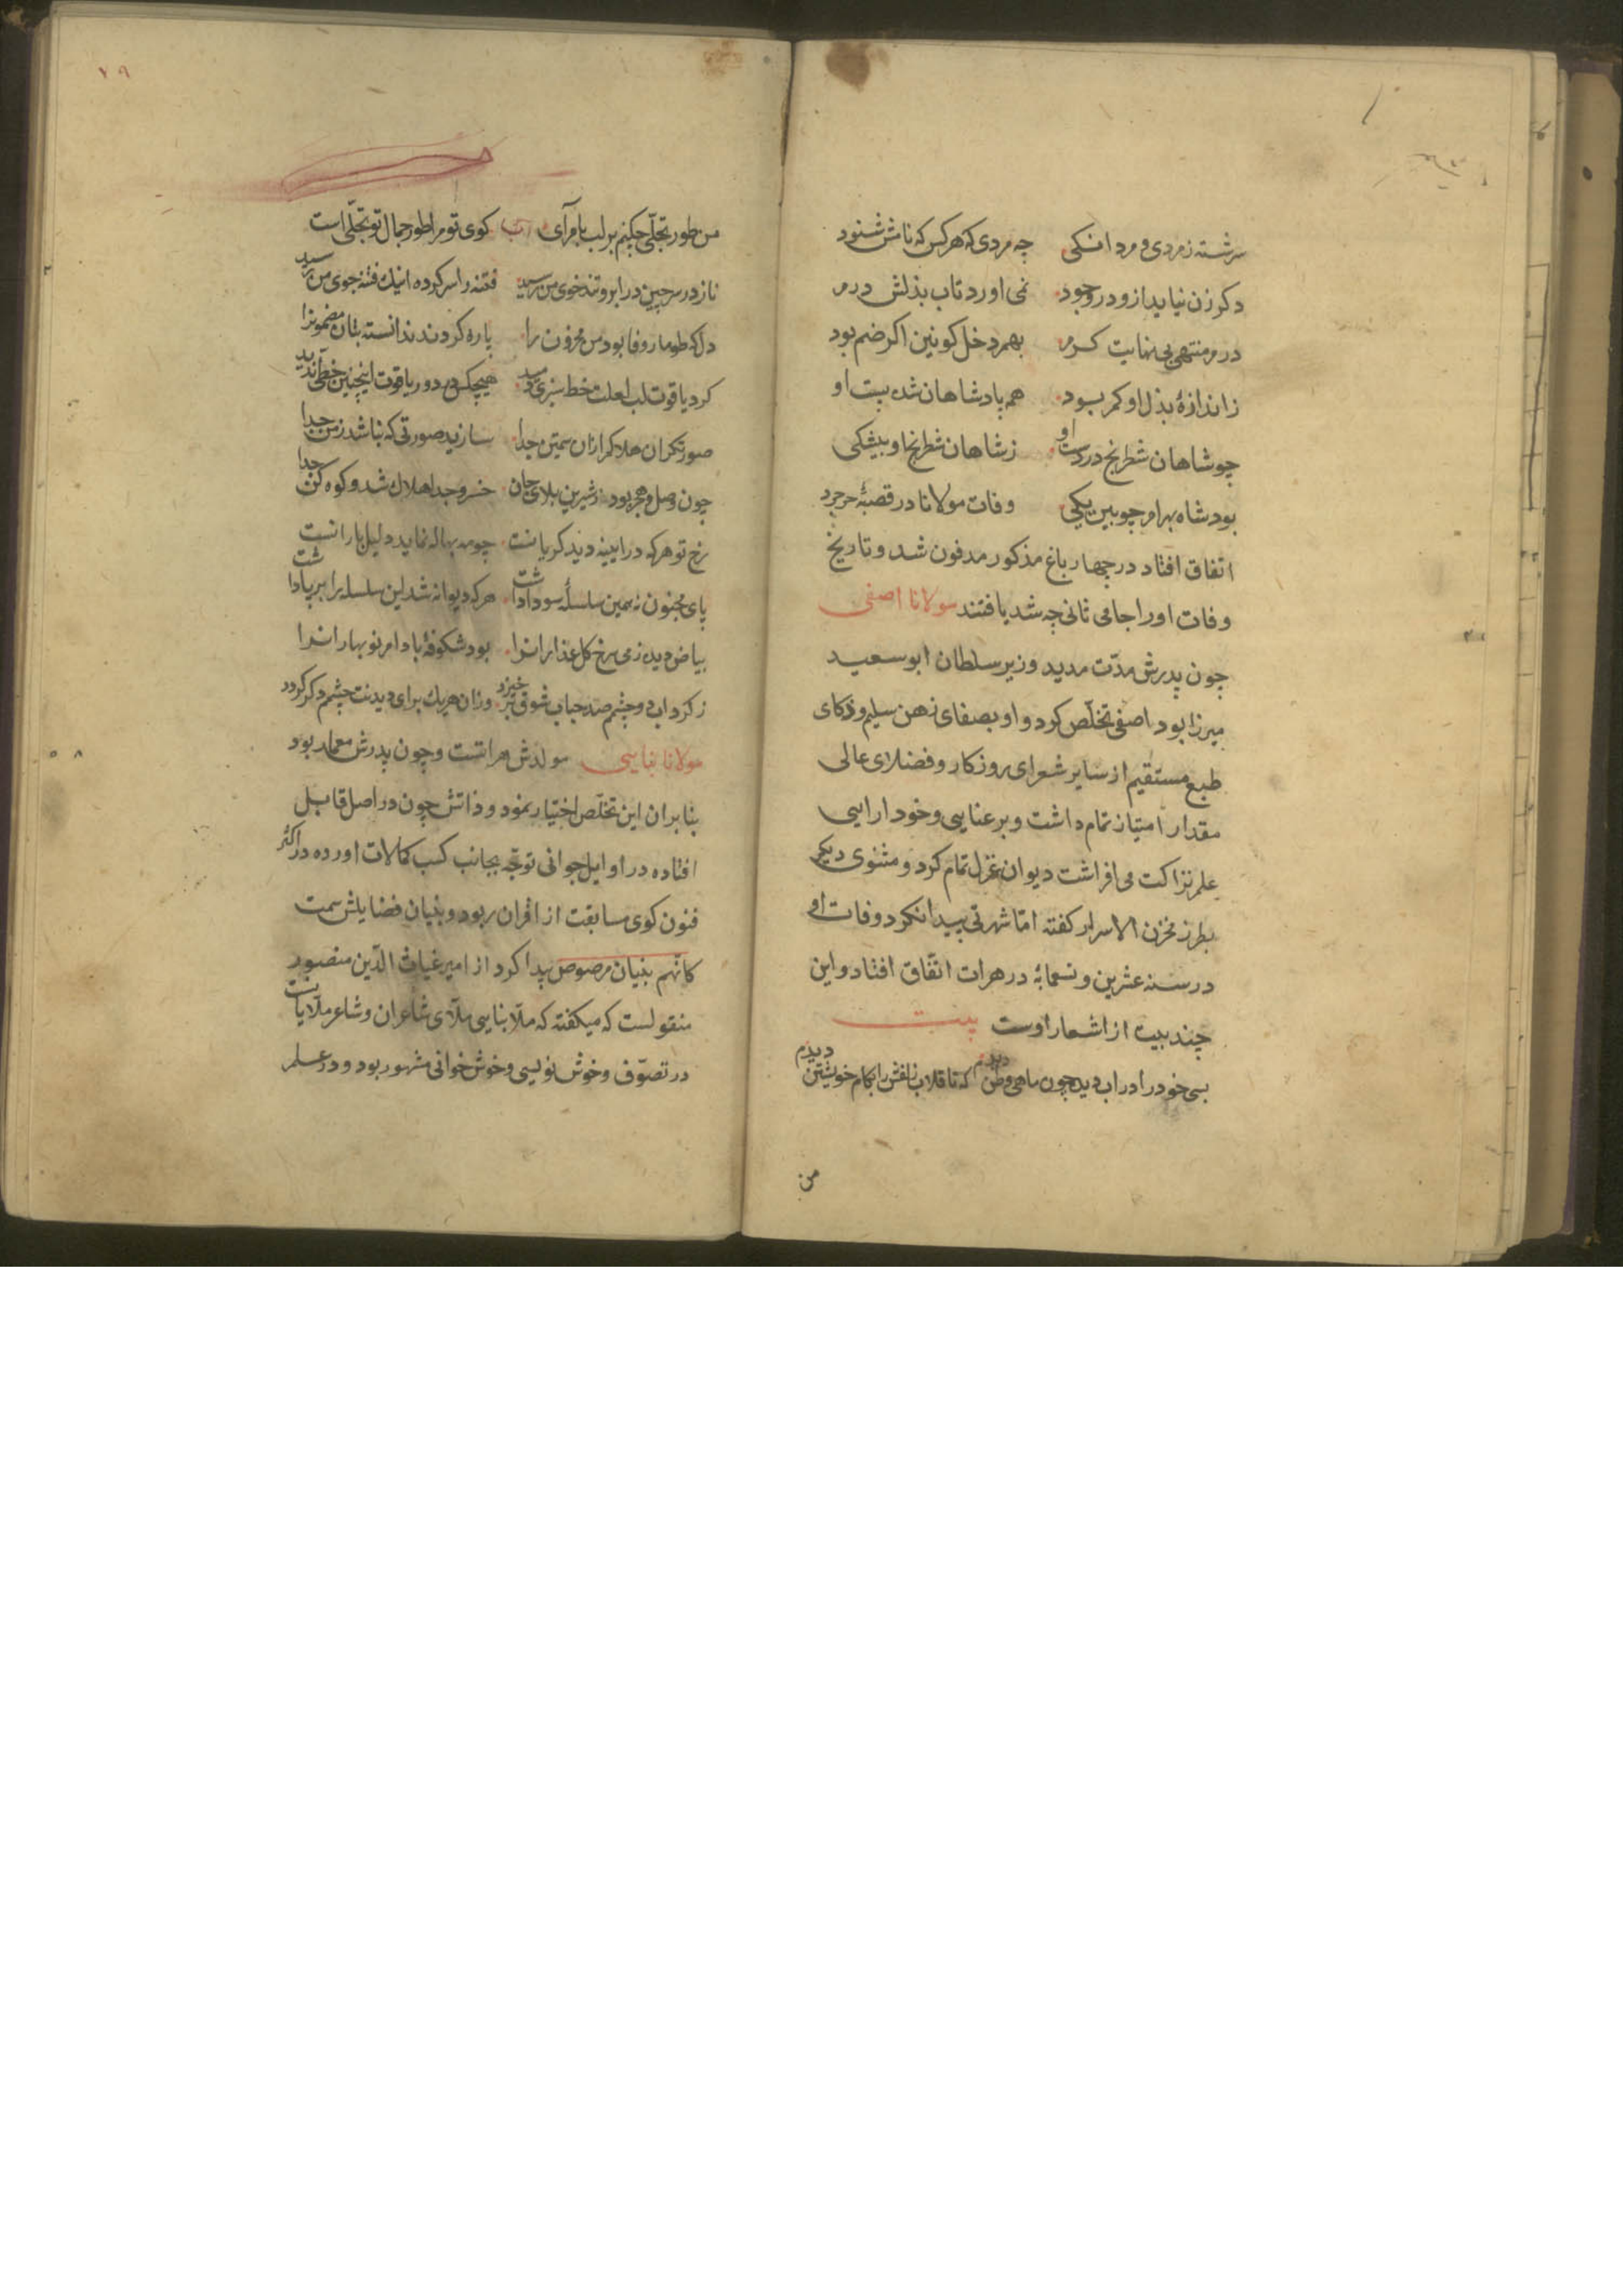 سرشته ز مردی و مرد افکنی چه مردی که هر کس که نامش شنود
دکر زن نیاید ازو در وجود نمی اورد تاب بذلش درم
درم منتهی بی نهایت کرم بهم دخل کونین اکر ضم بود
ز اندازهٔ بذل او کم بود هم پادشاهان شده پست او
چو شاهان شطرنج در دست او ز شاهان شطرنج او بیشکی
بود شاه بهرام چوبین یکی وفات مولانا در قصبهٔ خرجرد
اتفاق افتاد در چهار باغ مذکور مدفون شد و تاریخ
وفات او را جامی ثانی چه شد یافتند مولانا اصفی
چون پدرش مدّت مدید وزیر سلطان ابو سعید
میرزا بود اصفی تخلّص کرد و او بصفای ذهن سلیم و ذکای
طبع مستقیم از سایر شعرای روزکار و فضلای عالی
مقدار امتیاز تمام داشت و برعنایی و خود ارایی
علم نزاکت می افراشت دیوان غزل تمام کرد و مثنوی دیکر
بطرز مخزن الاسرار کفته امّا شهرتی پیدا نکرد وفات او
در سنه عشرین و تسعمایهٔ در هرات اتّفاق افتاد و این
چند بیت از اشعار اوست بیت
بسی خود را در اب دیده چون ماهی وطن دیدم که تا قلاب زلفش را بکام خویشتن دیدم
من
۷۹
من طور تجلّی چکنم بر لب بام آی کوی تو مرا طور جمال تو تجلّی است
ناز در سر چین در ابرو تند خوی من رسید فتنه را سر کرده اینک فتنه جوی من رسید
دل که طومار وفا بود من محزون را پاره کردند ندانسته بتان مضمونرا
کرد یاقوت لب لعلت خط سبزی پدید هیچکس در دور یاقوت اینچنین خطی ندید
صورتکران هلاکم ازان سیمتن جدا سازید صورتی که نباشد ز من جدا
چون وصل و هجر بود ز شیرین بلای جان خسرو جدا هلاک شد و کوه کن جدا
رخ تو هر که در ایینه دید کریانست چو مه بهاله نماید دلیل بارانست
پای مجنون نه همین سلسلهٔ سودا داشت هر که دیوانه شد این سلسله را بر پا داشت
بیاض دیده ز می رخ کل عذارانرا بود شکوفهٔ بادام نو بهارانرا
ز کرداب دو چشمم صد حباب شوق بر خیزد وزان هر یک برای دیدنت چشم دکر کردد
مولانا بنایی مولدش هراتست و چون پدرش معمار بود
بنا بران این تخلّص اختیار نمود و ذاتش چون در اصل قابل
افتاده در اوایل جوانی توجّه بجانب کسب کمالات اورده در اکثر
فنون کوی مسابقت از اقران ربود و بنیان فضایلش سمت
کانّهم بنیان مرصوص پیدا کرد از امیر غیاث الدّین منصور
منقولست که میکفته که ملّا بنایی ملّای شاعران و شاعر ملّایانست
در تصوّف و خوش نویسی و خوش خوانی مشهور بود و در علم